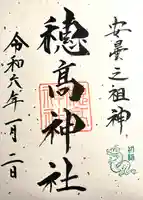 安曇之祖神
穂高神社
令和六年一月二日
初詣